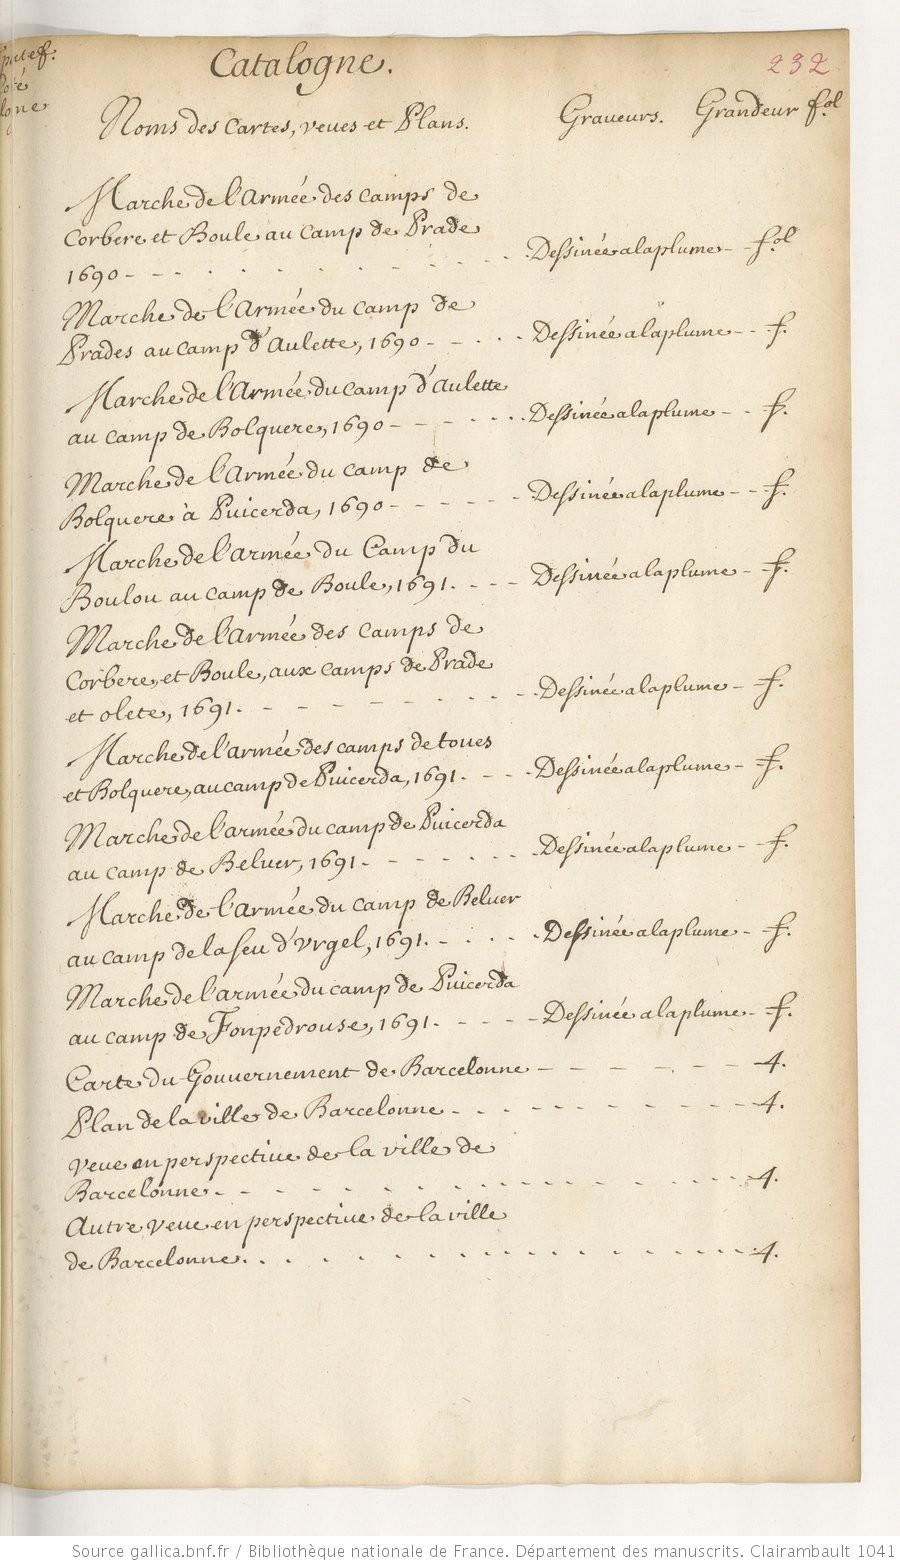 Catalogne.
232
Noms des Cartes, veues et Plans. Graveurs. Grandeur fol
Marche de l'Armée des camps de
Corbere et Boule au Camp de Prade
1690 - - - . . . . . . . . Dessinée a la plume - - fol
Marche de l'Armée du camp de
Prades au camp d'Aulette, 1690 - - . . . Dessinée a la plume - - f.
Marche de l'Armée du camp d'Aulette
au camp de Bolquere, 1690 - - - - . . . Dessinée a la plume - - f.
Marche de l'Armée du camp de
Bolquere à Puicerda, 1690 - - - - - - - Dessinée a la plume - - f.
Marche de l'armée du Camp du
Boulou au camp de Boule, 1691. - - - Dessinée a la plume - f.
Marche de l'Armée des camps de
Corbere, et Boule, aux camps de Prade
et olete, 1691. - - - - - - - - Dessinée a la plume - f.
Marche de l'armée des camps de toues
et Bolquere, au camp de Puicerda, 1691. - - - Dessinée a la plume - f.
Marche de l'armée du camp de Puicerda
au camp de Beluer, 1691 - - - - - - - Dessinée a la plume - f.
Marche de l'armée du camp de Beluer
au camp de la seu d'Vrgel, 1691. - . . . . Dessinée a la plume - f.
Marche de l'armée du camp de Puicerda
au camp de Fonpedrouse, 1691. - - - - - Dessinée a la plume - f.
Carte du Gouvernement de Barcelonne - - - - - - - 4.
Plan de la ville de Barcelonne - - - - - - - - - 4.
veue en perspective de la ville de
Barcelonne - - - - - - - - - - - - 4.
Autre veue en perspective de la ville
de Barcelonne . . . . . . . . . . . . 4.
Source gallica.bnf.fr / Bibliothèque nationale de France. Département des manuscrits. Clairambault 1041